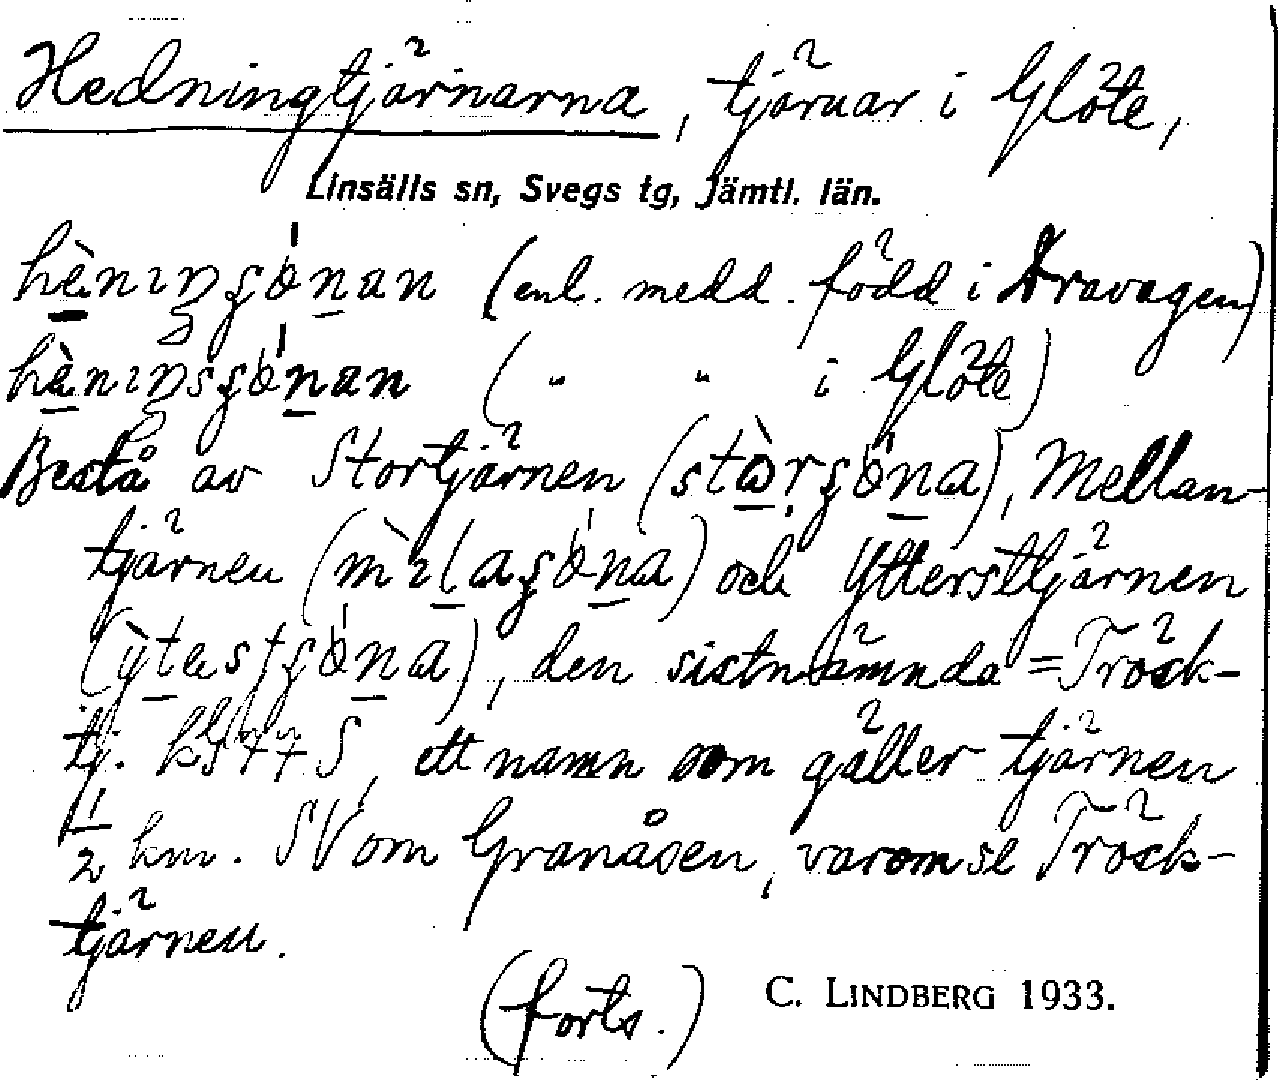 Hedningtjärnarna, tjärnar i Glöte,
Linsälls sn, Svegs tg, Jämtl. län.
(enl. medd. född i Dravagen)
( " " i Glöte)
Bestå av Stortjärnen (stòrʂö́na), Mellan-
tjärnen och Yttersttjärnen
den sistnämnda = Tröck-
tj. ett namn som gäller tjärnen
1/2 km. SV om Granåsen, varom se Tröck-
tjärnen.
(forts.) C. LINDBERG 1933.